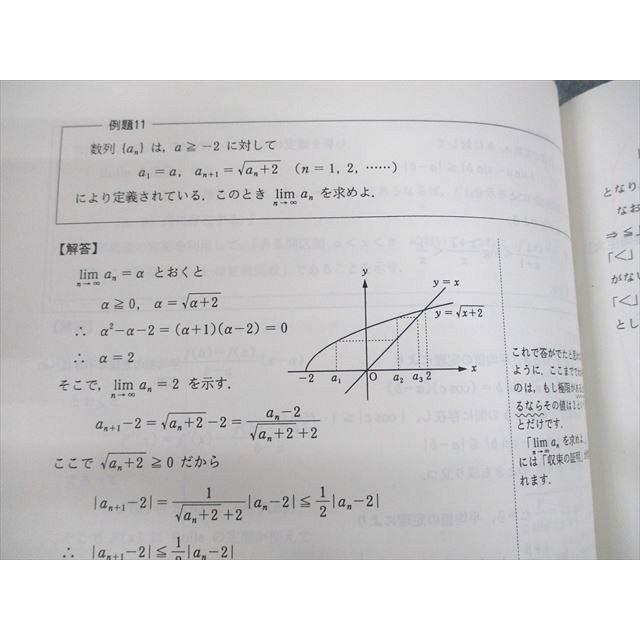 例題11
数列 {aₙ} は，a ≧ −2 に対して
a₁ = a，aₙ₊₁ = √(aₙ+2)　(n = 1, 2, ……)
により定義されている．このとき lim_{n→∞} aₙ を求めよ．
【解答】
lim_{n→∞} aₙ = α とおくと
α ≧ 0，α = √(α+2)
∴ α²−α−2 = (α+1)(α−2) = 0
∴ α = 2
そこで，lim_{n→∞} aₙ = 2 を示す．
aₙ₊₁−2 = √(aₙ+2) −2 = (aₙ−2)/(√(aₙ+2)+2)
ここで √(aₙ+2) ≧ 0 だから
|aₙ₊₁−2| = 1/(√(aₙ+2)+2) |aₙ−2| ≦ 1/2 |aₙ−2|
∴ |aₙ₊₁−2| ≦ 1/2 |aₙ−2|
y
y = x
y = √(x+2)
−2 a₁ O a₂ a₃ 2 x
これで答がでたと
ように．ここまで
のは，もし極限が
るならその値は2
とだけです．
「lim_{n→∞} aₙ を求めよ
には「収束の証明」
れます．
となり
なお
⇒ ≦
「<」
がな
「<」
とし